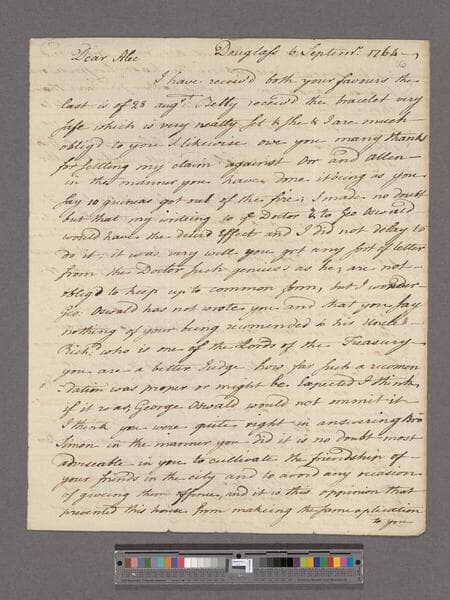 Douglass 6 Septemr. 1764
16
Dear Alec
I have receiv'd both your favours the
last is of 28 augt. Betty receiv'd the bracelet very
safe which is very neatly set & she & I are much
oblig'd to you I likewise owe you many thanks
for settling my claim against Orr and Allen
in the manner you have done it being as you
say 10 guineas got out of the fire; I made no doubt
but that my writeing to ye Doctor & to Geo Oswald
would have the desir'd effect and I did not delay to
do it; it was very well you got any sort of letter
from the Doctor such genius's as he, are not
oblig'd to keep up to common form, but I wonder
Geo: Oswald has not wrote you and that you say
nothing of your being recomended to his Uncle
Richd. who is one of the Lords of the Treasury
you are a better Judge how far such a recomen
dation was proper or might be Expected I think,
if it was, George Oswald would not ommit it
I think you were quite right in answering Bro
Simon in the manner you did it is no doubt most
adviseable in you to cultivate the friendship of
your friends in the city and to avoid any occasion
of giveing them offence, and it is this oppinion that
prevented this house from making the same application
to you